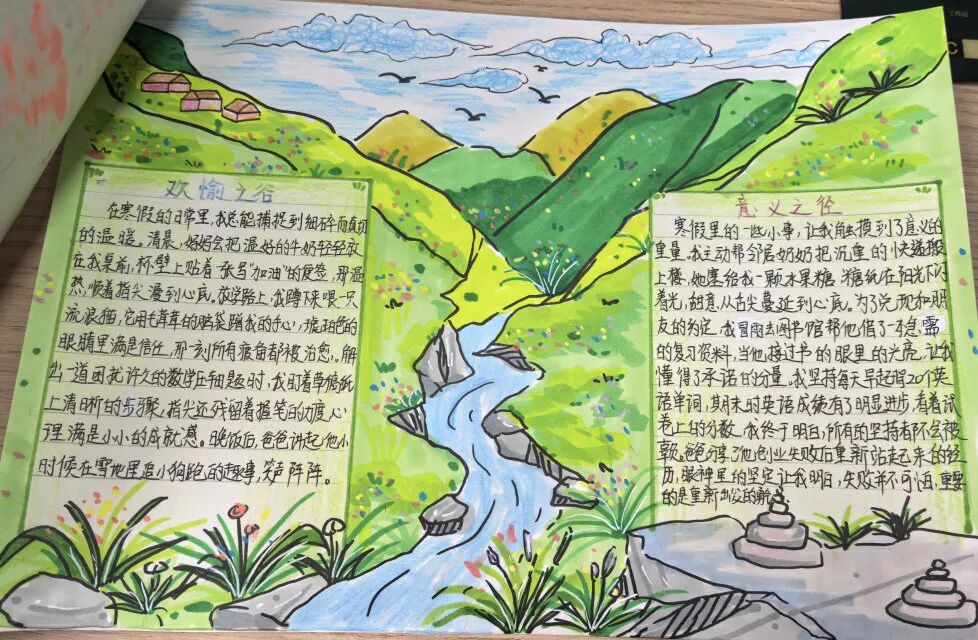 欢愉之谷
在寒假的日常里,我总能捕捉到细碎而真切
的温暖。清晨,妈妈会把温好的牛奶轻轻放
在我桌前,杯壁上贴着一张写"加油"的便签,那温
热顺着指尖漫到心底。放学路上,我蹲下来喂一只
流浪猫,它用毛茸茸的脑袋蹭我的手心,琥珀色的
眼睛里满是信任,那一刻所有疲惫都被治愈。解
出一道困扰许久的数学压轴题时,我盯着草稿纸
上清晰的步骤,指尖还残留着握笔的力度,心
理满是小小的成就感。晚饭后,爸爸讲起他小
时候在雪地里追小狗跑的趣事,笑声阵阵。
意义之径
寒假里的一些小事,让我触摸到了意义的
重量。我主动帮邻居奶奶把沉重的快递搬
上楼,她塞给我一颗水果糖,糖纸在阳光下闪
着光,甜意从舌尖蔓延到心底。为了兑现和朋
友的约定,我冒雨去图书馆帮他借了一本急需
的复习资料,当他接过书的眼里的光亮,让我
懂得了承诺的分量。我坚持每天早起背20个英
语单词,期末时英语成绩有了明显进步,看着试
卷上的分数,我终于明白,所有的坚持都不会被辜
歉。爸爸分享了他创业失败后重新站起来的经
历,眼神里的坚定让我明白,失败并不可怕,重要
的是重新出发的
工作站
C